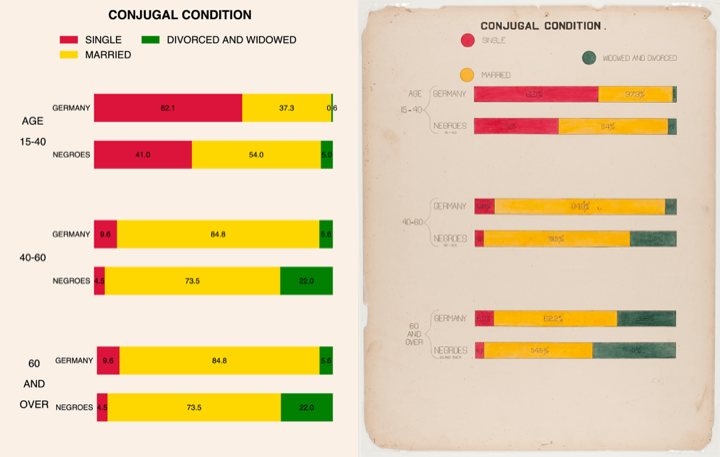 CONJUGAL CONDITION
SINGLE
DIVORCED AND WIDOWED
MARRIED
AGE
15-40
GERMANY
62.1
37.3
0.6
NEGROES
41.0
54.0
5.0
40-60
GERMANY
9.6
84.8
5.6
NEGROES
4.5
73.5
22.0
60
AND
OVER
GERMANY
9.6
84.8
5.6
NEGROES
4.5
73.5
22.0
CONJUGAL CONDITION.
SINGLE
WIDOWED AND DIVORCED
MARRIED
AGE
15-40
GERMANY
37.3%
NEGROES
54%
40-60
GERMANY
84.8%
NEGROES
73.5%
60
AND
OVER
GERMANY
62.2%
NEGROES